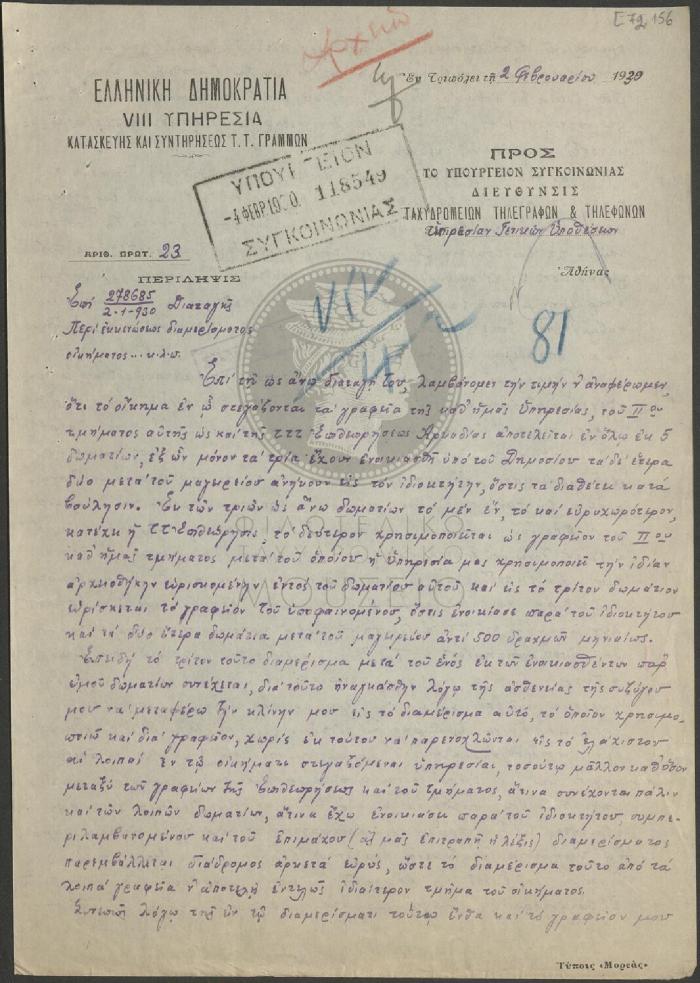 [72 156
Ἀρχεῖον
Ἐν Τριπόλει τῇ 2 Φεβρουαρίου 1930
ΕΛΛΗΝΙΚΗ ΔΗΜΟΚΡΑΤΙΑ
VIII ΥΠΗΡΕΣΙΑ
ΚΑΤΑΣΚΕΥΗΣ ΚΑΙ ΣΥΝΤΗΡΗΣΕΩΣ Τ. Τ. ΓΡΑΜΜΩΝ
ΥΠΟΥΡΓΕΙΟΝ
-4 ΦΕΒΡ 1930. 118549
ΣΥΓΚΟΙΝΩΝΙΑΣ
ΠΡΟΣ
ΤΟ ΥΠΟΥΡΓΕΙΟΝ ΣΥΓΚΟΙΝΩΝΙΑΣ
ΔΙΕΥΘΥΝΣΙΣ
ΤΑΧΥΔΡΟΜΕΙΩΝ ΤΗΛΕΓΡΑΦΩΝ & ΤΗΛΕΦΩΝΩΝ
Ὑπηρεσίαν Γενικῶν Ὑποθέσεων
Ἀθήνας
ΑΡΙΘ. ΠΡΩΤ. 23
ΠΕΡΙΛΗΨΙΣ
Ἐπί 278685 Διαταγῆς
2-1-930
Περί ἐκκενώσεως διαμερίσματος
οἰκήματος... κ.λ.π.
81
Ἐπί τῇ ὡς ἄνω διαταγῇ του, λαμβάνομεν τήν τιμήν ν' ἀναφέρωμεν,
ὅτι τό οἴκημα ἐν ᾧ στεγάζονται τά γραφεῖα τῆς καθ' ἡμᾶς Ὑπηρεσίας, τοῦ ΙΙου
τμήματος αὐτῆς ὡς καί τῆς ΤΤΤ Ἐπιθεωρήσεως Ἀρκαδίας ἀποτελεῖται ἐν ὅλῳ ἐκ 5
δωματίων, ἐξ ὧν μόνον τά τρία ἔχουν ἐνοικιασθῆ ὑπό τοῦ Δημοσίου τά δέ ἕτερα
δύο μετά τοῦ μαγειρείου ἀνήκουν εἰς τόν ἰδιοκτήτην, ὅστις τά διαθέτει κατά
βούλησιν. Ἐκ τῶν τριῶν ὡς ἄνω δωματίων τό μέν ἕν, τό καί εὐρυχωρότερον,
κατέχει ἡ ΤΤ Ἐπιθεώρησις, τό δεύτερον χρησιμοποιεῖται ὡς γραφεῖον τοῦ ΙΙου
καθ' ἡμᾶς τμήματος μετά τοῦ ὁποίου ἡ ὑπηρεσία μας χρησιμοποιεῖ τήν ἰδίαν
ἀρχειοθήκην εὑρισκομένην ἐντός τοῦ δωματίου αὐτοῦ καί εἰς τό τρίτον δωμάτιον
εὑρίσκεται τό γραφεῖον τοῦ ὑποφαινομένου, ὅστις ἐνοικίασε παρά τοῦ ἰδιοκτήτου
καί τά δύο ἕτερα δωμάτια μετά τοῦ μαγειρείου ἀντί 500 δραχμῶν μηνιαίως.
Ἐπειδή τό τρίτον τοῦτο διαμέρισμα μετά τοῦ ἑνός ἐκ τῶν ἐνοικιασθέντων παρ'
ἐμοῦ δωματίων συνέχεται, διά τοῦτο ἠναγκάσθην λόγῳ τῆς ἀσθενείας τῆς συζύγου
μου νά μεταφέρω τήν κλίνην μου εἰς τό διαμέρισμα αὐτό, τό ὁποῖον χρησιμο-
ποιῶ καί διά γραφεῖον, χωρίς ἐκ τούτου νά παρενοχλῶνται εἰς τό ἐλάχιστον
αἱ λοιπαί ἐν τῷ οἰκήματι στεγαζόμεναι ὑπηρεσίαι, τοσούτῳ μᾶλλον καθ' ὅσον
μεταξύ τῶν γραφείων τῆς Ἐπιθεωρήσεως καί τοῦ τμήματος, ἅτινα συνέχονται πάλιν
καί τῶν λοιπῶν δωματίων, ἅτινα ἔχω ἐνοικιάσει παρά τοῦ ἰδιοκτήτου, συμπε-
ριλαμβανομένου καί τοῦ ἐπιμάχου (ἄς μᾶς ἐπιτραπῇ ἡ λέξις) διαμερίσματος
παρεμβάλλεται διάδρομος ἀρκετά εὐρύς, ὥστε τό διαμέρισμα τοῦτο ἀπό τά
λοιπά γραφεῖα ν' ἀποτελῇ ἐντελῶς ἰδιαίτερον τμῆμα τοῦ οἰκήματος.
λόγῳ τῆς ἐν τῷ διαμερίσματι τούτῳ ἔνθα καί τό γραφεῖον μου
ΦΙΛΟΤΕΛΙΚΟ
ΜΟΥΣΕΙΟ
Τύποις «Μορεάς»